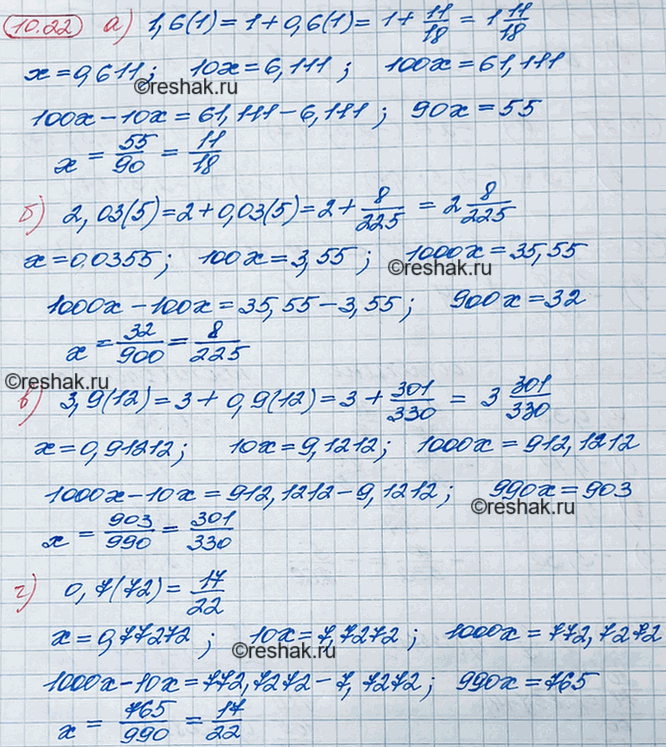 10.22 а) 1,6(1) = 1 + 0,6(1) = 1 + 11/18 = 1 11/18
x = 0,611; 10x = 6,111; 100x = 61,111
©reshak.ru
100x - 10x = 61,111 - 6,111; 90x = 55
x = 55/90 = 11/18
б) 2,03(5) = 2 + 0,03(5) = 2 + 8/225 = 2 8/225
x = 0.0355; 100x = 3,55; 1000x = 35,55
©reshak.ru
1000x - 100x = 35,55 - 3,55; 900x = 32
x = 32/900 = 8/225
©reshak.ru
в) 3,9(12) = 3 + 0,9(12) = 3 + 301/330 = 3 301/330
x = 0,91212; 10x = 9,1212; 1000x = 912,1212
1000x - 10x = 912,1212 - 9,1212; 990x = 903
©reshak.ru
x = 903/990 = 301/330
г) 0,7(72) = 17/22
x = 0,77272; 10x = 7,7272; 1000x = 772,7272
©reshak.ru
1000x - 10x = 772,7272 - 7,7272; 990x = 765
x = 765/990 = 17/22